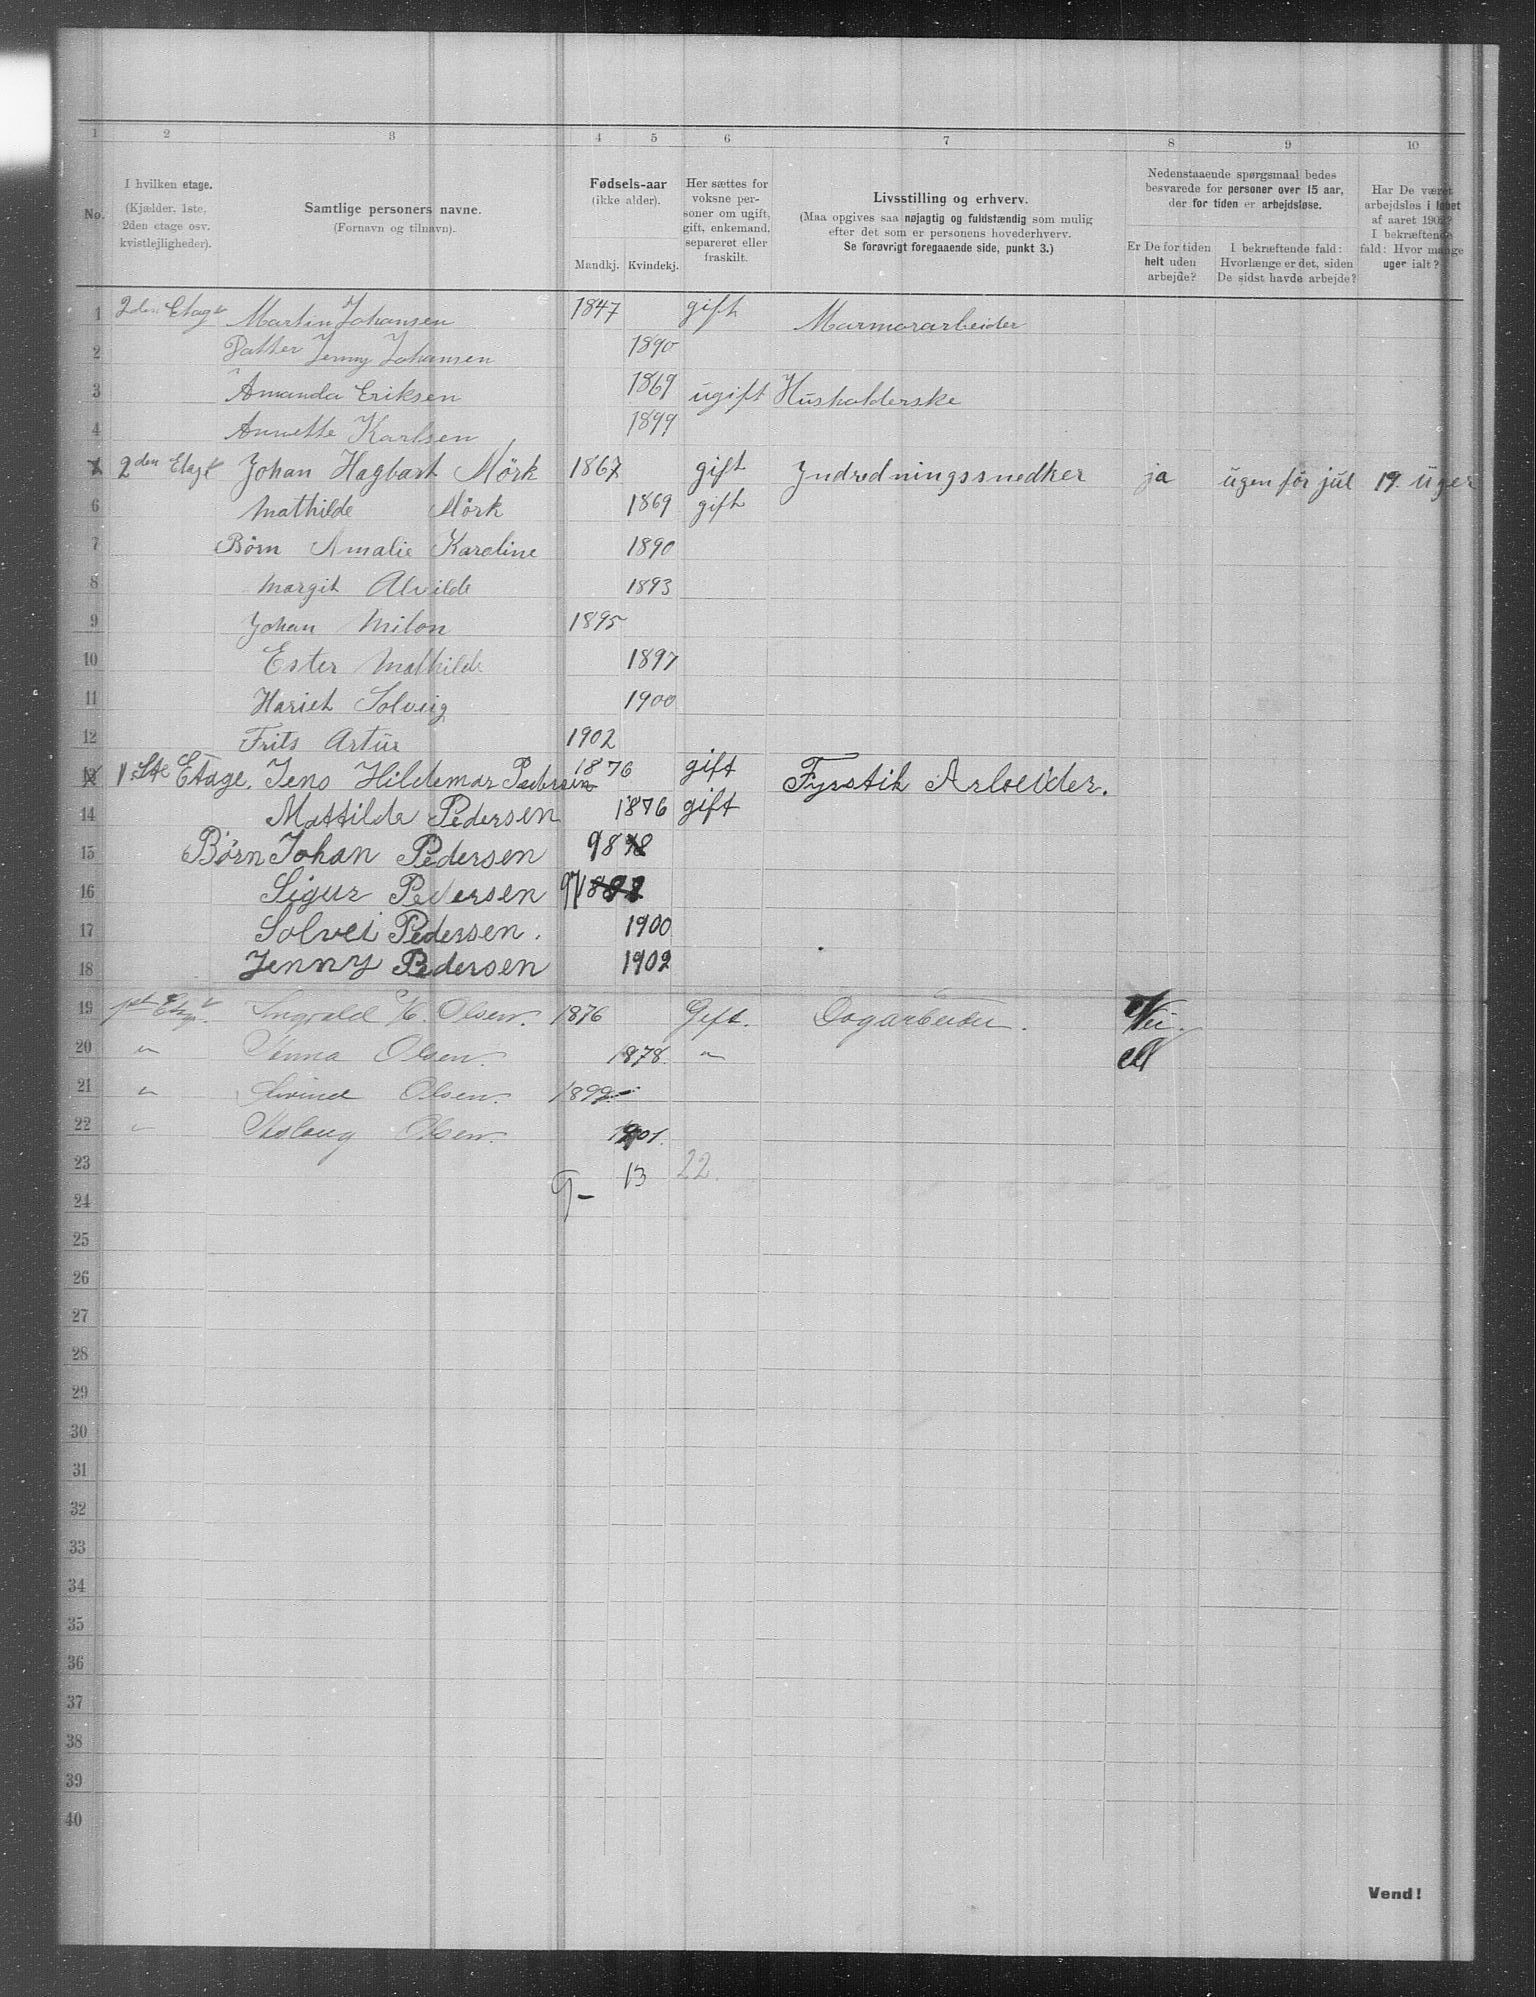 1 2 3 4 5 6 7 8 9 10
No.
I hvilken etage.
(Kjælder, 1ste,
2den etage osv.
kvistlejligheder).
Samtlige personers navne.
(Fornavn og tilnavn).
Fødsels-aar
(ikke alder).
Mandkj. Kvindekj.
Her sættes for
voksne per-
soner om ugift,
gift, enkemand,
separeret eller
fraskilt.
Livsstilling og erhverv.
(Maa opgives saa nøjagtig og fuldstændig som mulig
efter det som er personens hovederhverv.
Se forøvrigt foregaaende side, punkt 3.)
Nedenstaaende spørgsmaal bedes
besvarede for personer over 15 aar,
der for tiden er arbejdsløse.
Er De for tiden
helt uden
arbejde?
I bekræftende fald:
Hvorlænge er det, siden
De sidst havde arbejde?
Har De været
arbejdsløs i løbet
af aaret 1902?
I bekræftende
fald: Hvor mange
uger ialt?
1 2den Etage Martin Johansen 1847 gift Marmorarbeider
2 Datter Jenny Johansen 1890
3 Amanda Eriksen 1869 ugift Husholderske
4 Annette Karlsen 1899
2den Etage Johan Hagbart Mörk 1867 gift Indredningssnedker ja ugen før jul 19 uger
6 Mathilde Mörk 1869 gift
7 Børn Amalie Karoline 1890
8 Margit Alvilde 1893
9 Johan Milon 1895
10 Ester Mathilde 1897
11 Hariet Solveig 1900
12 Frits Artur 1902
1ste Etage. Jens Hildemar Pedersen 1876 gift Fyrstik Arbeider.
14 Mattilde Pedersen 1876 gift
15 Børn Johan Pedersen 98
16 Sigur Pedersen 97
17 Solvei Pedersen. 1900
18 Jenny Pedersen 1902
19 1st Etage. Ingvald Olsen. 1876 Gift. Dagarbeider. Nei.
20 " Olsen. 1878. "
21 " Eivind Olsen. 1899
22 " Aslaug Olsen. 1901.
23 9 - 13 22.
24
25
26
27
28
29
30
31
32
33
34
35
36
37
38
39
40
Vend!